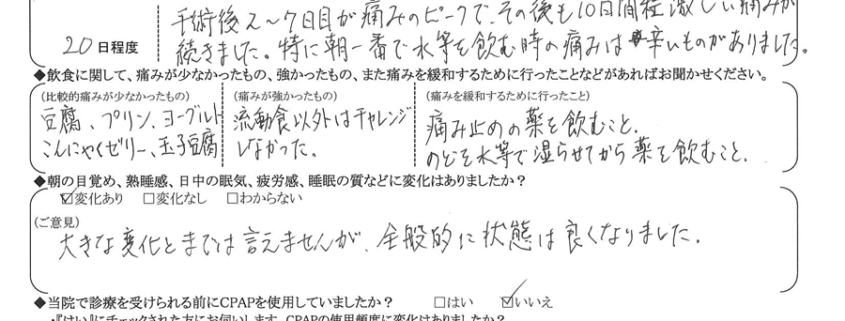 手術後2〜7日目が痛みのピークで、その後も10日間程激しい痛みが
20日程度
続きました。特に朝一番で水等を飲む時の痛みは辛いものがありました。
◆飲食に関して、痛みが少なかったもの、強かったもの、また痛みを緩和するために行ったことなどがあればお聞かせください。
(比較的痛みが少なかったもの)
豆腐、プリン、ヨーグルト
こんにゃくゼリー、玉子豆腐
(痛みが強かったもの)
流動食以外はチャレンジ
しなかった。
(痛みを緩和するために行ったこと)
痛み止めの薬を飲むこと、
のどを水等で湿らせてから薬を飲むこと、
◆朝の目覚め、熟睡感、日中の眠気、疲労感、睡眠の質などに変化はありましたか?
☑変化あり □変化なし □わからない
(ご意見)
大きな変化とまでは言えませんが、全般的に状態は良くなりました。
◆当院で診療を受けられる前にCPAPを使用していましたか? □はい ☑いいえ
・『はい』にチェックされた方にお伺いします。CPAPの使用頻度に変化はありましたか?